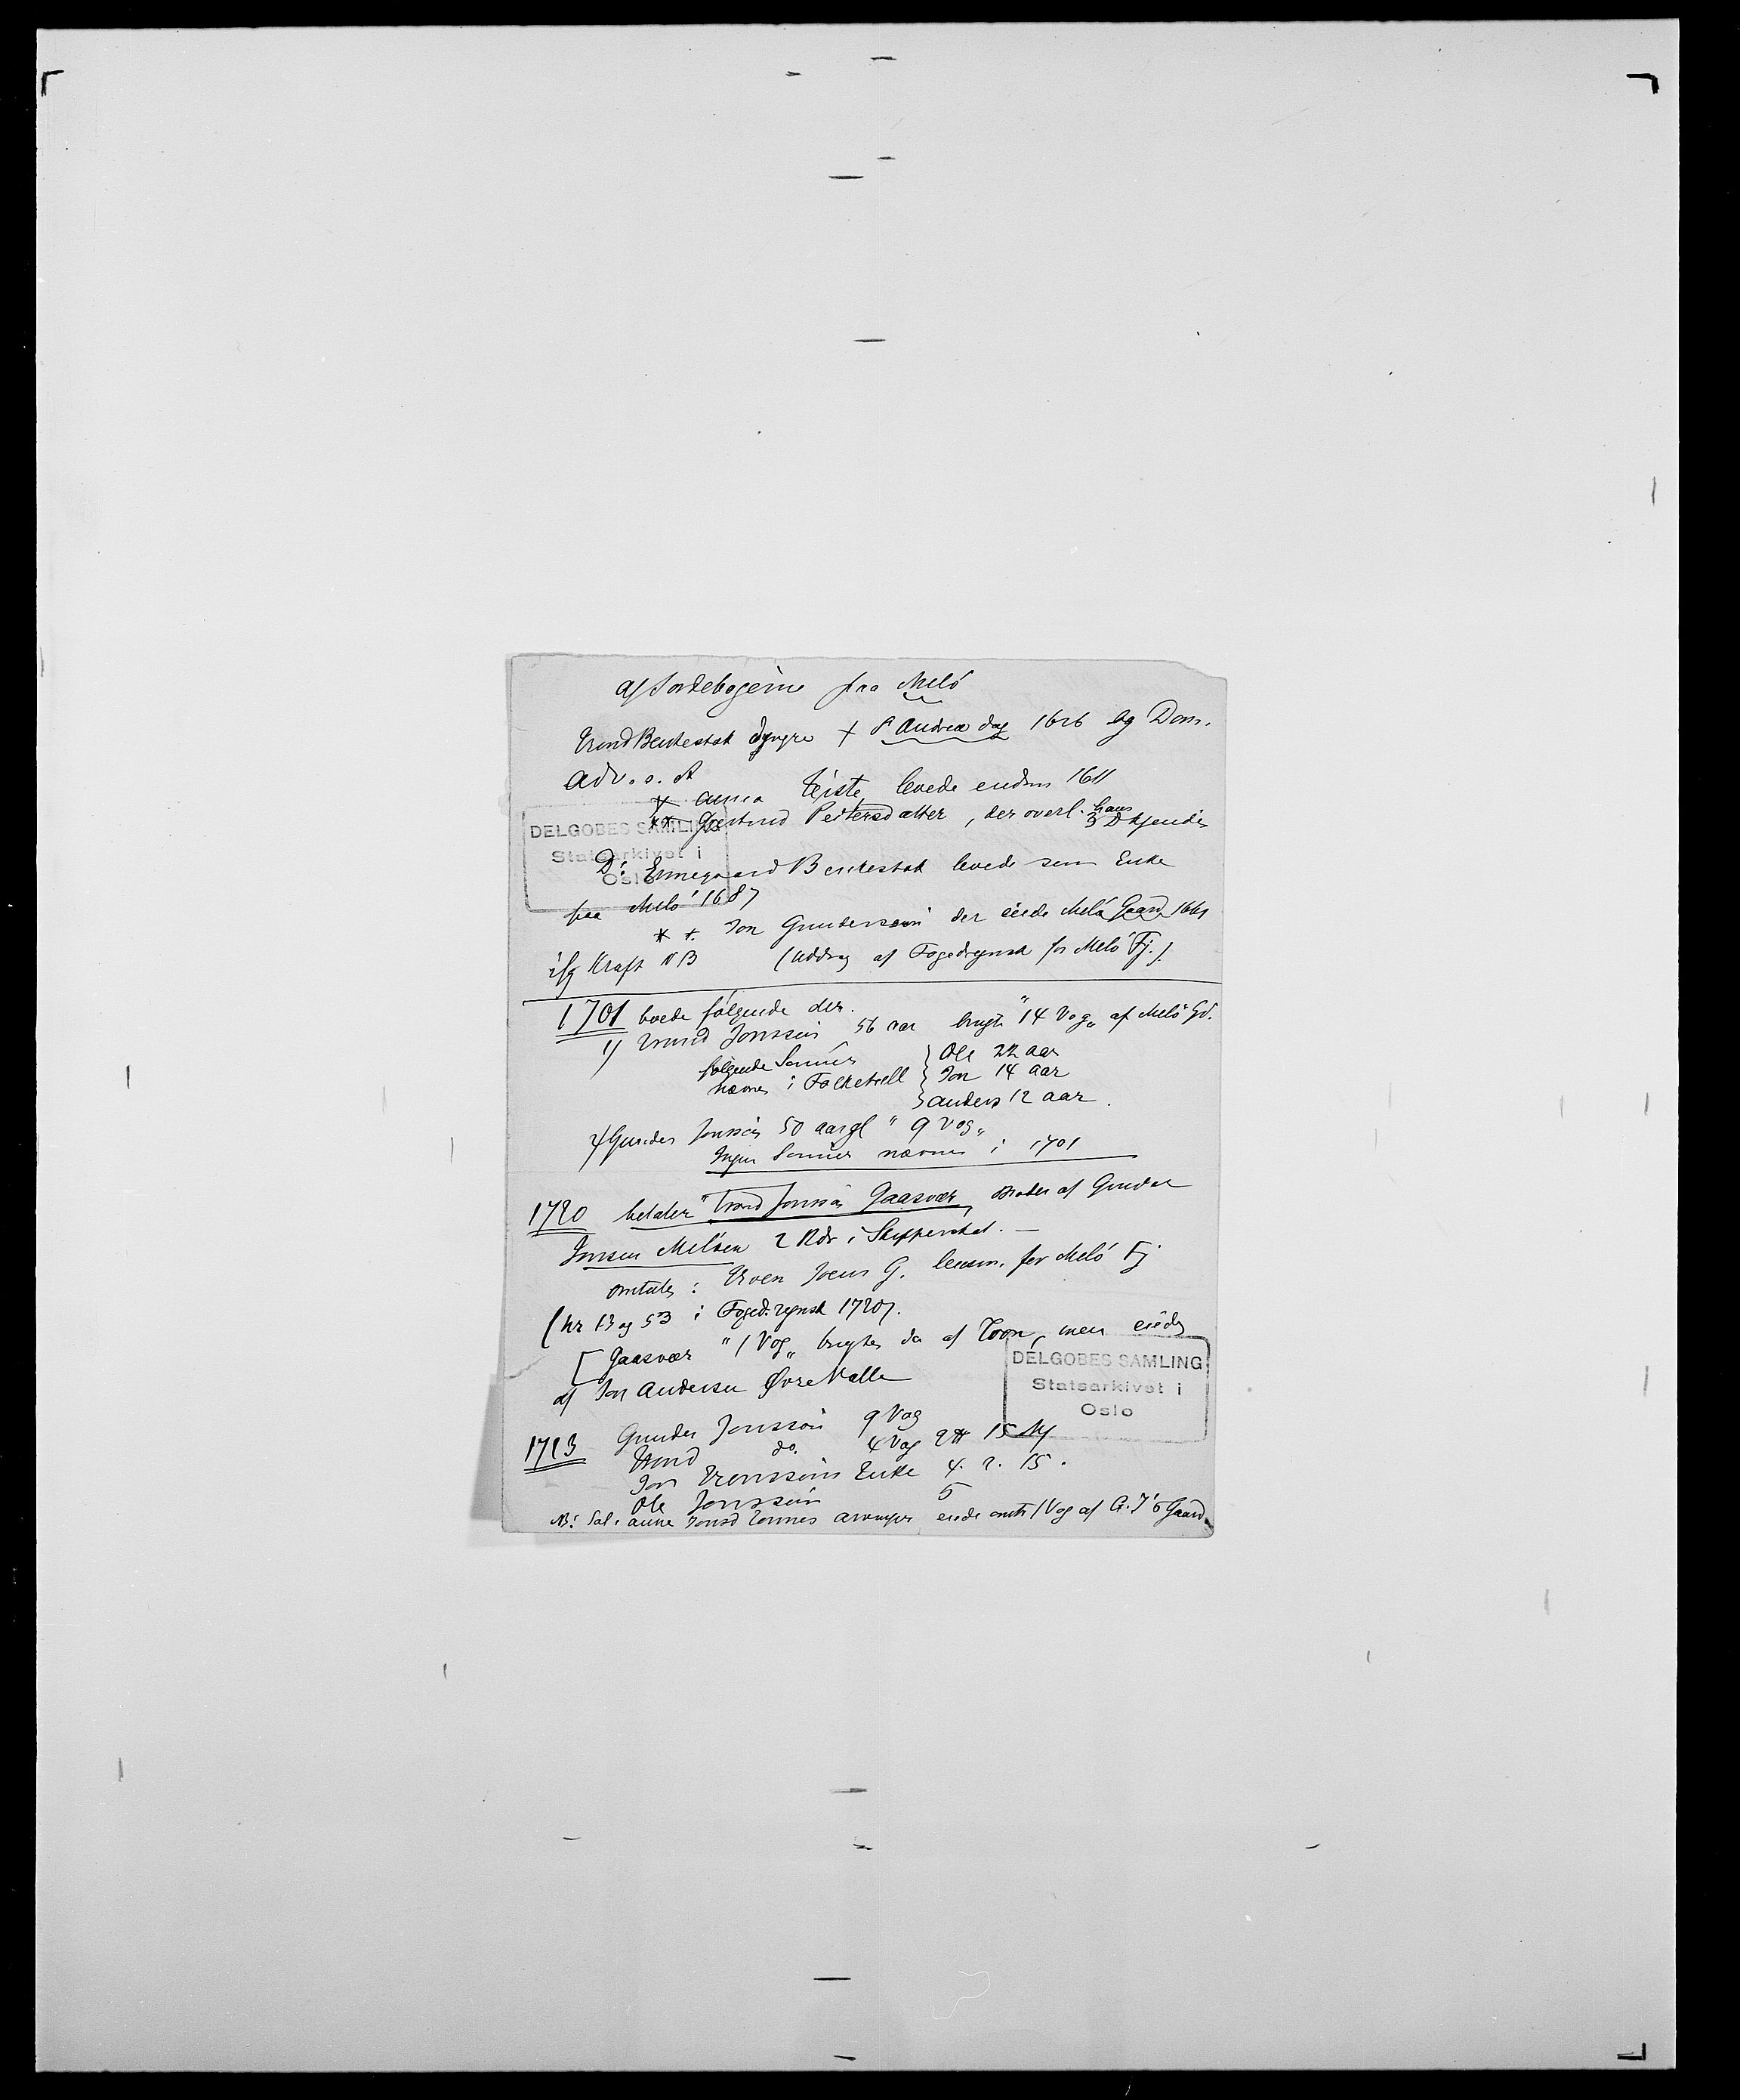 af Jordebogerne fra Melö
Trond Benkestok dyngre + St Andrea dag 1616 og Dom.
Adv. o. A
* anna Teiste, levede endnu 1611
** Giertrud Peitersdatter, der overl. hans
3 D kjendes
D: Ennegaard Benkestok levede som Enke
paa Melö 1687
* +. Jon Gundersøn der eiede Melö Gaard 1661
ifg Kraft NB (Uddrag af Fogedregnsk for Melö Fj.)
1701 boede følgende der.
1) Trond Jonssön 56 aar brugte "14 Vog" af Melö Gd.
følgende Sønner
nævnes i Folketæll
Ole 22 aar
Jon 14 aar
Anders 12 aar.
2) Gunder Jonssön 50 aargl "9 Vog"
Ingen Sønner nævnes i 1701
1720 betaler "Trond Jonssön Gaasvær, Broder af Gunder
Jonsen Melöen 2 Rdr i Skipperskat. —
omtales: Joens G. lensm. for Melö Fj
(Nr 13 og 53 i Foged.regnsk 1720).
[Gaasvær "1 Vog" brugtes da af Toon, men eiedes
af Jon Andersen Øvre Valle
1723 Gunder Jonssön 9 Vog
Trond do. 4 Vog 2 # 15 My
Jon Tronssöns Enke 4. 2. 15.
Ole Jonssön 5
NB: Sal. Anne Jonsd Tonnes arvinger eiede 1 Vog af G. J's Gaard.
DELGOBES SAMLING
Statsarkivet i
Oslo
DELGOBES SAMLING
Statsarkivet i
Oslo